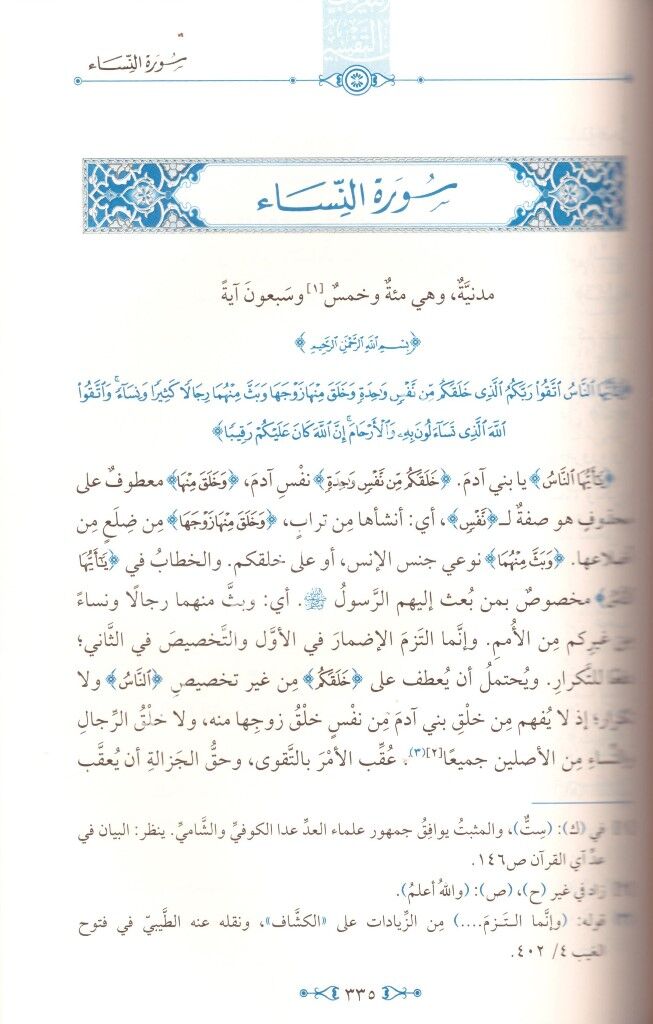 التفسير
سُورَة النِّسَاء
سُورَة النِّسَاء
مدنيَّةٌ، وهي مئةٌ وخمسٌ[١] وسَبعونَ آيةً
﴿بِسْمِ اللَّهِ الرَّحْمَٰنِ الرَّحِيمِ﴾
﴿يَٰٓأَيُّهَا ٱلنَّاسُ ٱتَّقُوا۟ رَبَّكُمُ ٱلَّذِى خَلَقَكُم مِّن نَّفْسٍ وَٰحِدَةٍ وَخَلَقَ مِنْهَا زَوْجَهَا وَبَثَّ مِنْهُمَا رِجَالًا كَثِيرًا وَنِسَآءً ۚ وَٱتَّقُوا۟
ٱللَّهَ ٱلَّذِى تَسَآءَلُونَ بِهِۦ وَٱلْأَرْحَامَ ۚ إِنَّ ٱللَّهَ كَانَ عَلَيْكُمْ رَقِيبًا﴾
﴿يَٰٓأَيُّهَا ٱلنَّاسُ﴾ يا بني آدمَ. ﴿خَلَقَكُم مِّن نَّفْسٍ وَٰحِدَةٍ﴾ نفْسِ آدمَ، ﴿وَخَلَقَ مِنْهَا﴾ معطوفٌ على
محذوفٍ هو صفةٌ لـ﴿نَّفْسٍ﴾، أي: أنشأها مِن ترابٍ، ﴿وَخَلَقَ مِنْهَا زَوْجَهَا﴾ مِن ضِلَعٍ مِن
أضلاعها. ﴿وَبَثَّ مِنْهُمَا﴾ نوعي جنس الإنس، أو على خلقكم. والخطابُ في ﴿يَٰٓأَيُّهَا
ٱلنَّاسُ﴾ مخصوصٌ بمن بُعث إليهم الرَّسولُ ﷺ. أي: وبثَّ منهما رجالًا ونساءً
مِن غيرِكم مِن الأُممِ. وإنَّما التَزمَ الإضمارَ في الأوَّل والتَّخصيصَ في الثَّاني؛
دفعًا للتَّكرارِ. ويُحتملُ أن يُعطف على ﴿خَلَقَكُم﴾ مِن غير تخصيصِ ﴿ٱلنَّاسُ﴾ ولا
تكرارَ؛ إذ لا يُفهم مِن خلْقِ بني آدمَ مِن نفْسٍ خلْقُ زوجِها منه، ولا خلْقُ الرِّجالِ
والنِّساءِ مِن الأصلين جميعًا[٢](٣). عُقِّب الأمْرَ بالتَّقوى، وحقُّ الجَزالةِ أن يُعقَّب
[١] في (ك): (سِتٌّ)، والمثبتُ يوافقُ جمهور علماء العدِّ عدا الكوفيِّ والشَّاميِّ. ينظر: البيان في
عدِّ آي القرآن ص١٤٦.
[٢] زاد في غير (ح)، (ص): (واللهُ أعلمُ).
(٣) قوله: (وإنَّما التـزمَ....) مِن الزِّيادات على «الكشَّاف»، ونقله عنه الطِّيبيّ في فتوح
الغيب ٤/ ٤٠٢.
٣٣٥